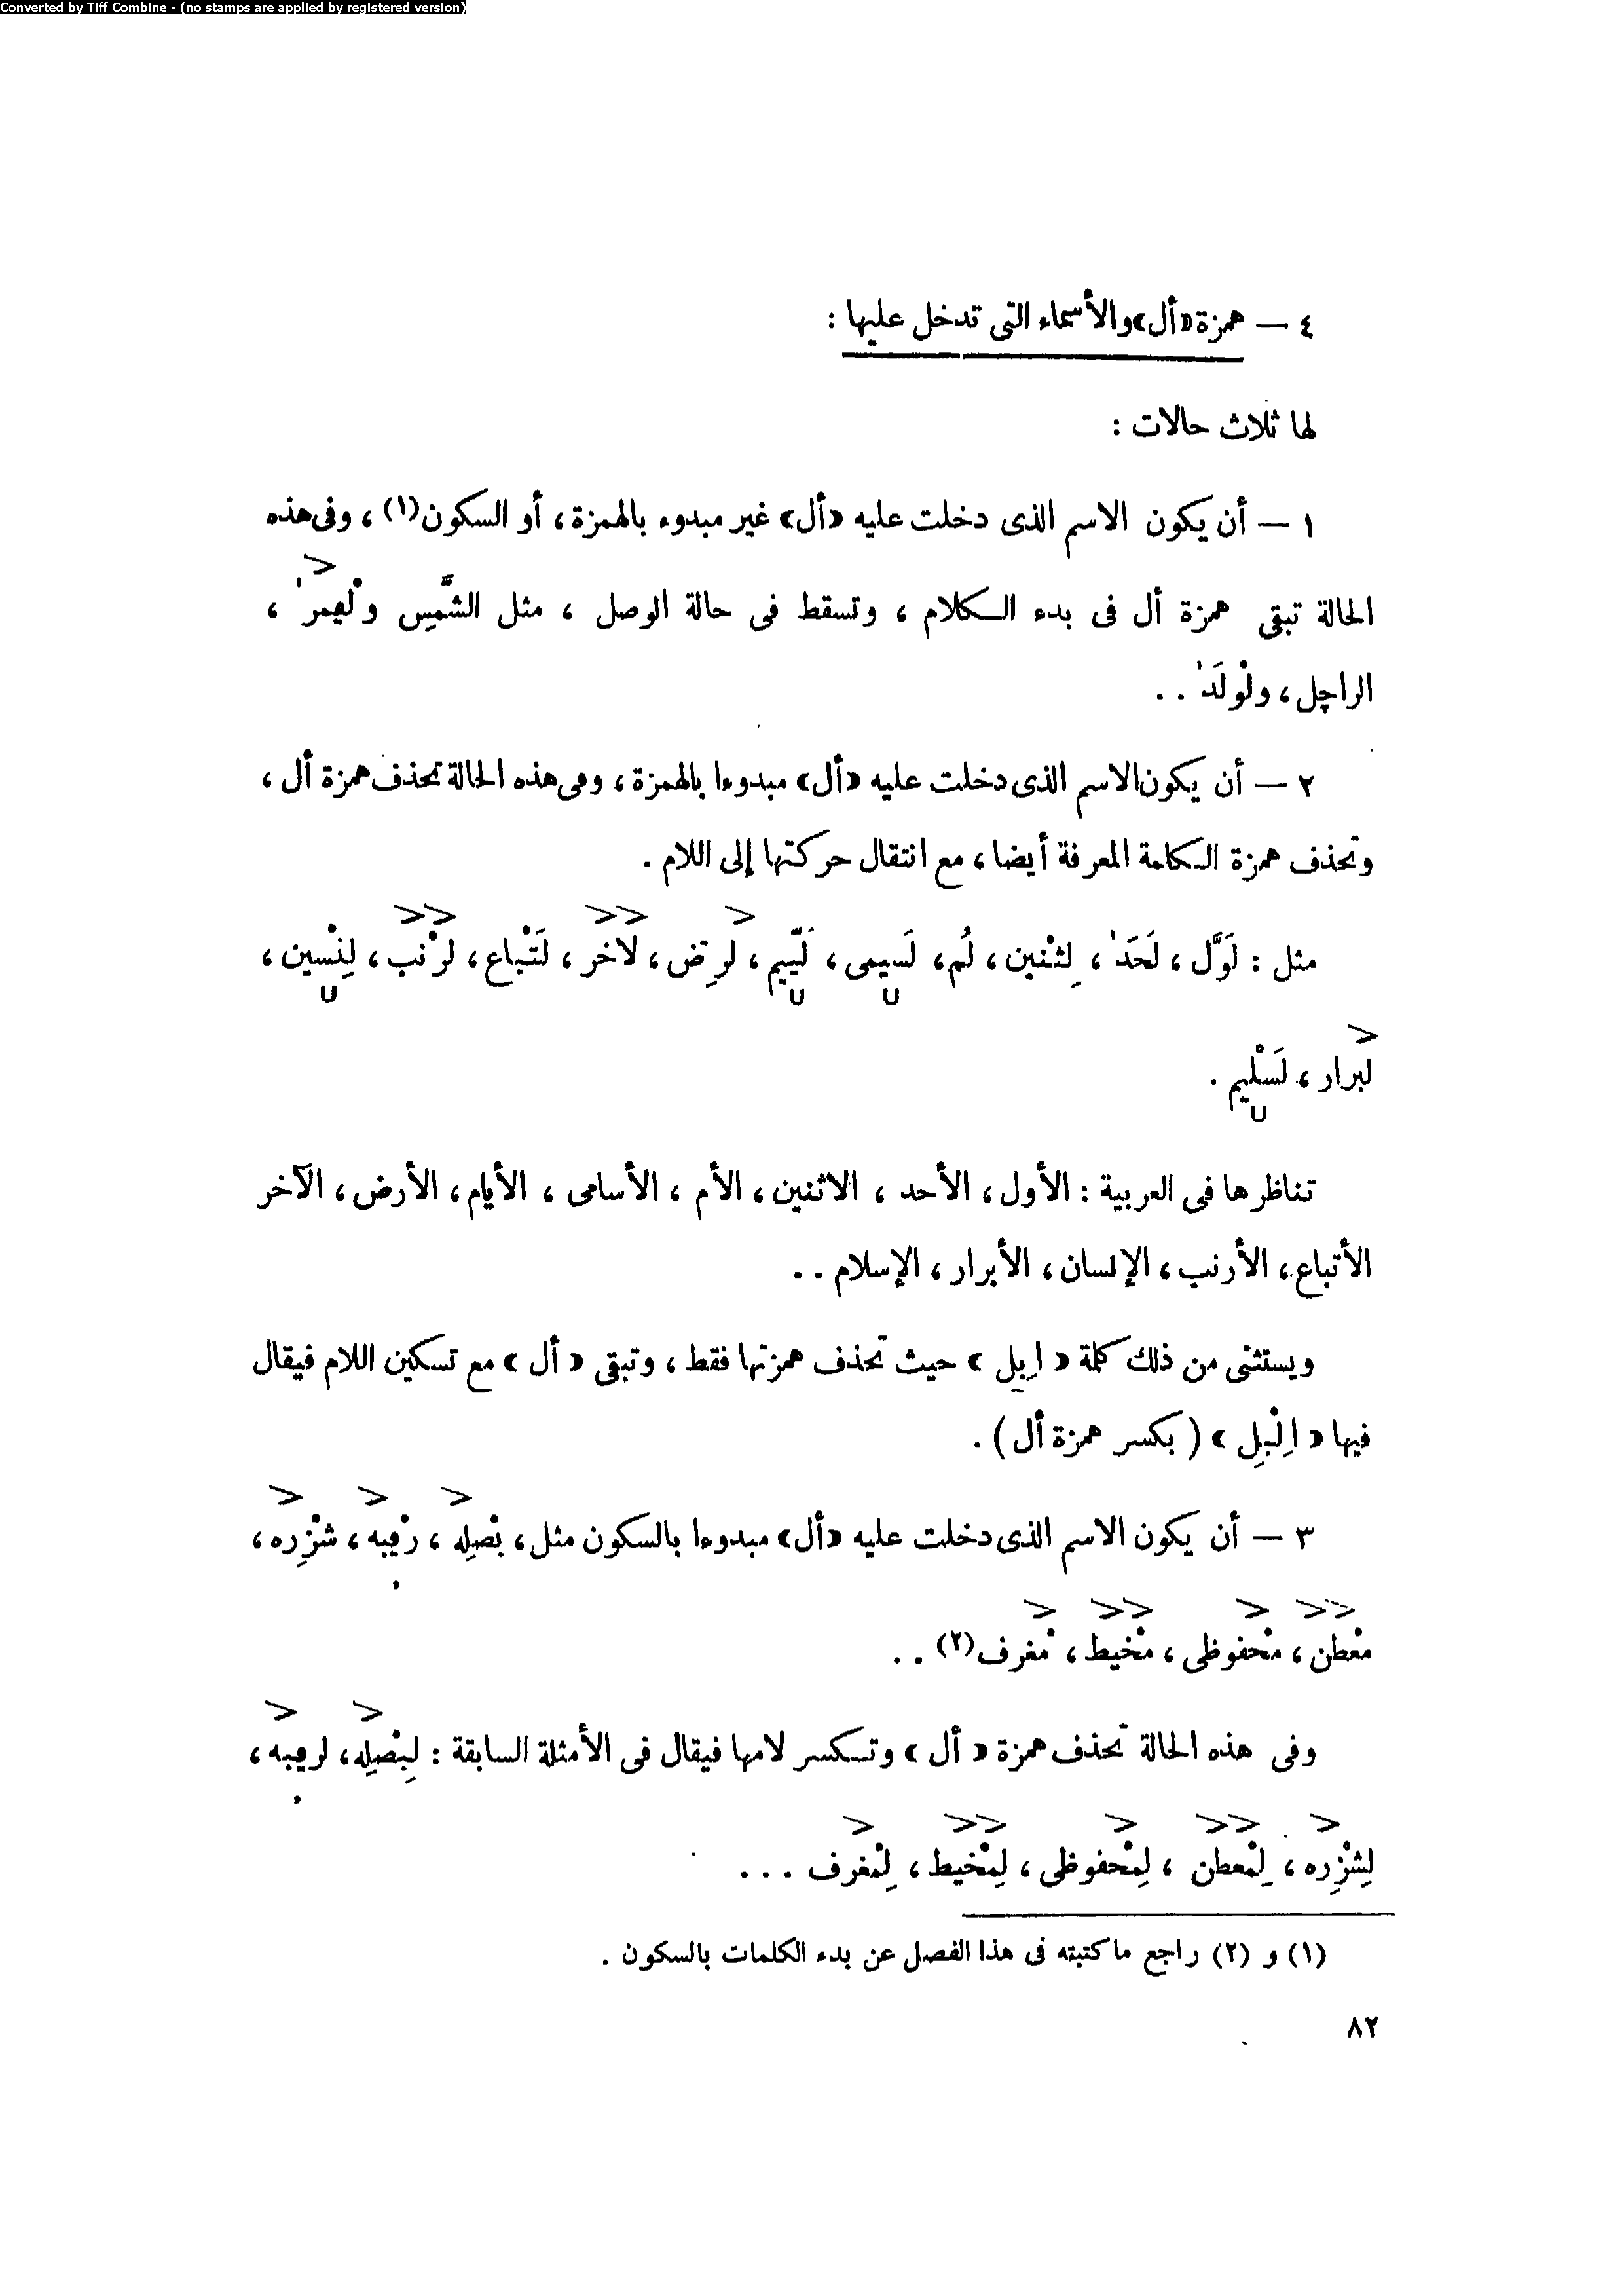 Converted by Tiff Combine - (no stamps are applied by registered version)
٤ — همزة «أل» والأسماء التى تدخل عليها :
لها ثلاث حالات :
١ — أن يكون الاسم الذى دخلت عليه «أل» غير مبدوء بالهمزة ، أو السكون(١) ، وفى هذه
الحالة تبقى همزة أل فى بدء الكلام ، وتسقط فى حالة الوصل ، مثل الشَّمِس ولْعمر ،
الراچل ، ولْولَد . .
٢ — أن يكون الاسم الذى دخلت عليه «أل» مبدوءا بالهمزة ، وفى هذه الحالة تحذف همزة أل ،
وتحذف همزة الكلمة المعرفة أيضا ، مع انتقال حركتها إلى اللام .
مثل : لَوَّل ، لَحَد ، لِثنين ، لُم ، لَسيمى ، لَيّيم ، لرِض ، لاخر ، لَتْباع ، لرْنب ، لِنْسين ،
لبرار ، لَسْليم .
تناظرها فى العربية : الأول ، الأحد ، الاثنين ، الأم ، الأسامى ، الأيام ، الأرض ، الآخر
الأتباع ، الأرنب ، الإنسان ، الأبرار ، الإسلام . .
ويستثنى من ذلك كلمة « اِبِل » حيث تحذف همزتها فقط ، وتبقى « أل » مع تسكين اللام فيقال
فيها « اِلْبِل » ( بكسر همزة أل ) .
٣ — أن يكون الاسم الذى دخلت عليه «أل» مبدوءا بالسكون مثل ، بْصلِه ، رْڢبه ، شْزِره ،
مْعطن ، مْحفوظى ، مْخيط ، مْغرف(٢) . .
وفى هذه الحالة تحذف همزة « أل » وتكسر لامها فيقال فى الأمثلة السابقة : لِبْصلِه ، لرڢبه ،
لِشْزِره ، لِمْعطن ، لِمْحفوظى ، لِمْخيط ، لِمْغرف . . .
(١) و (٢) راجع ما كتبته فى هذا الفصل عن بدء الكلمات بالسكون .
٨٢